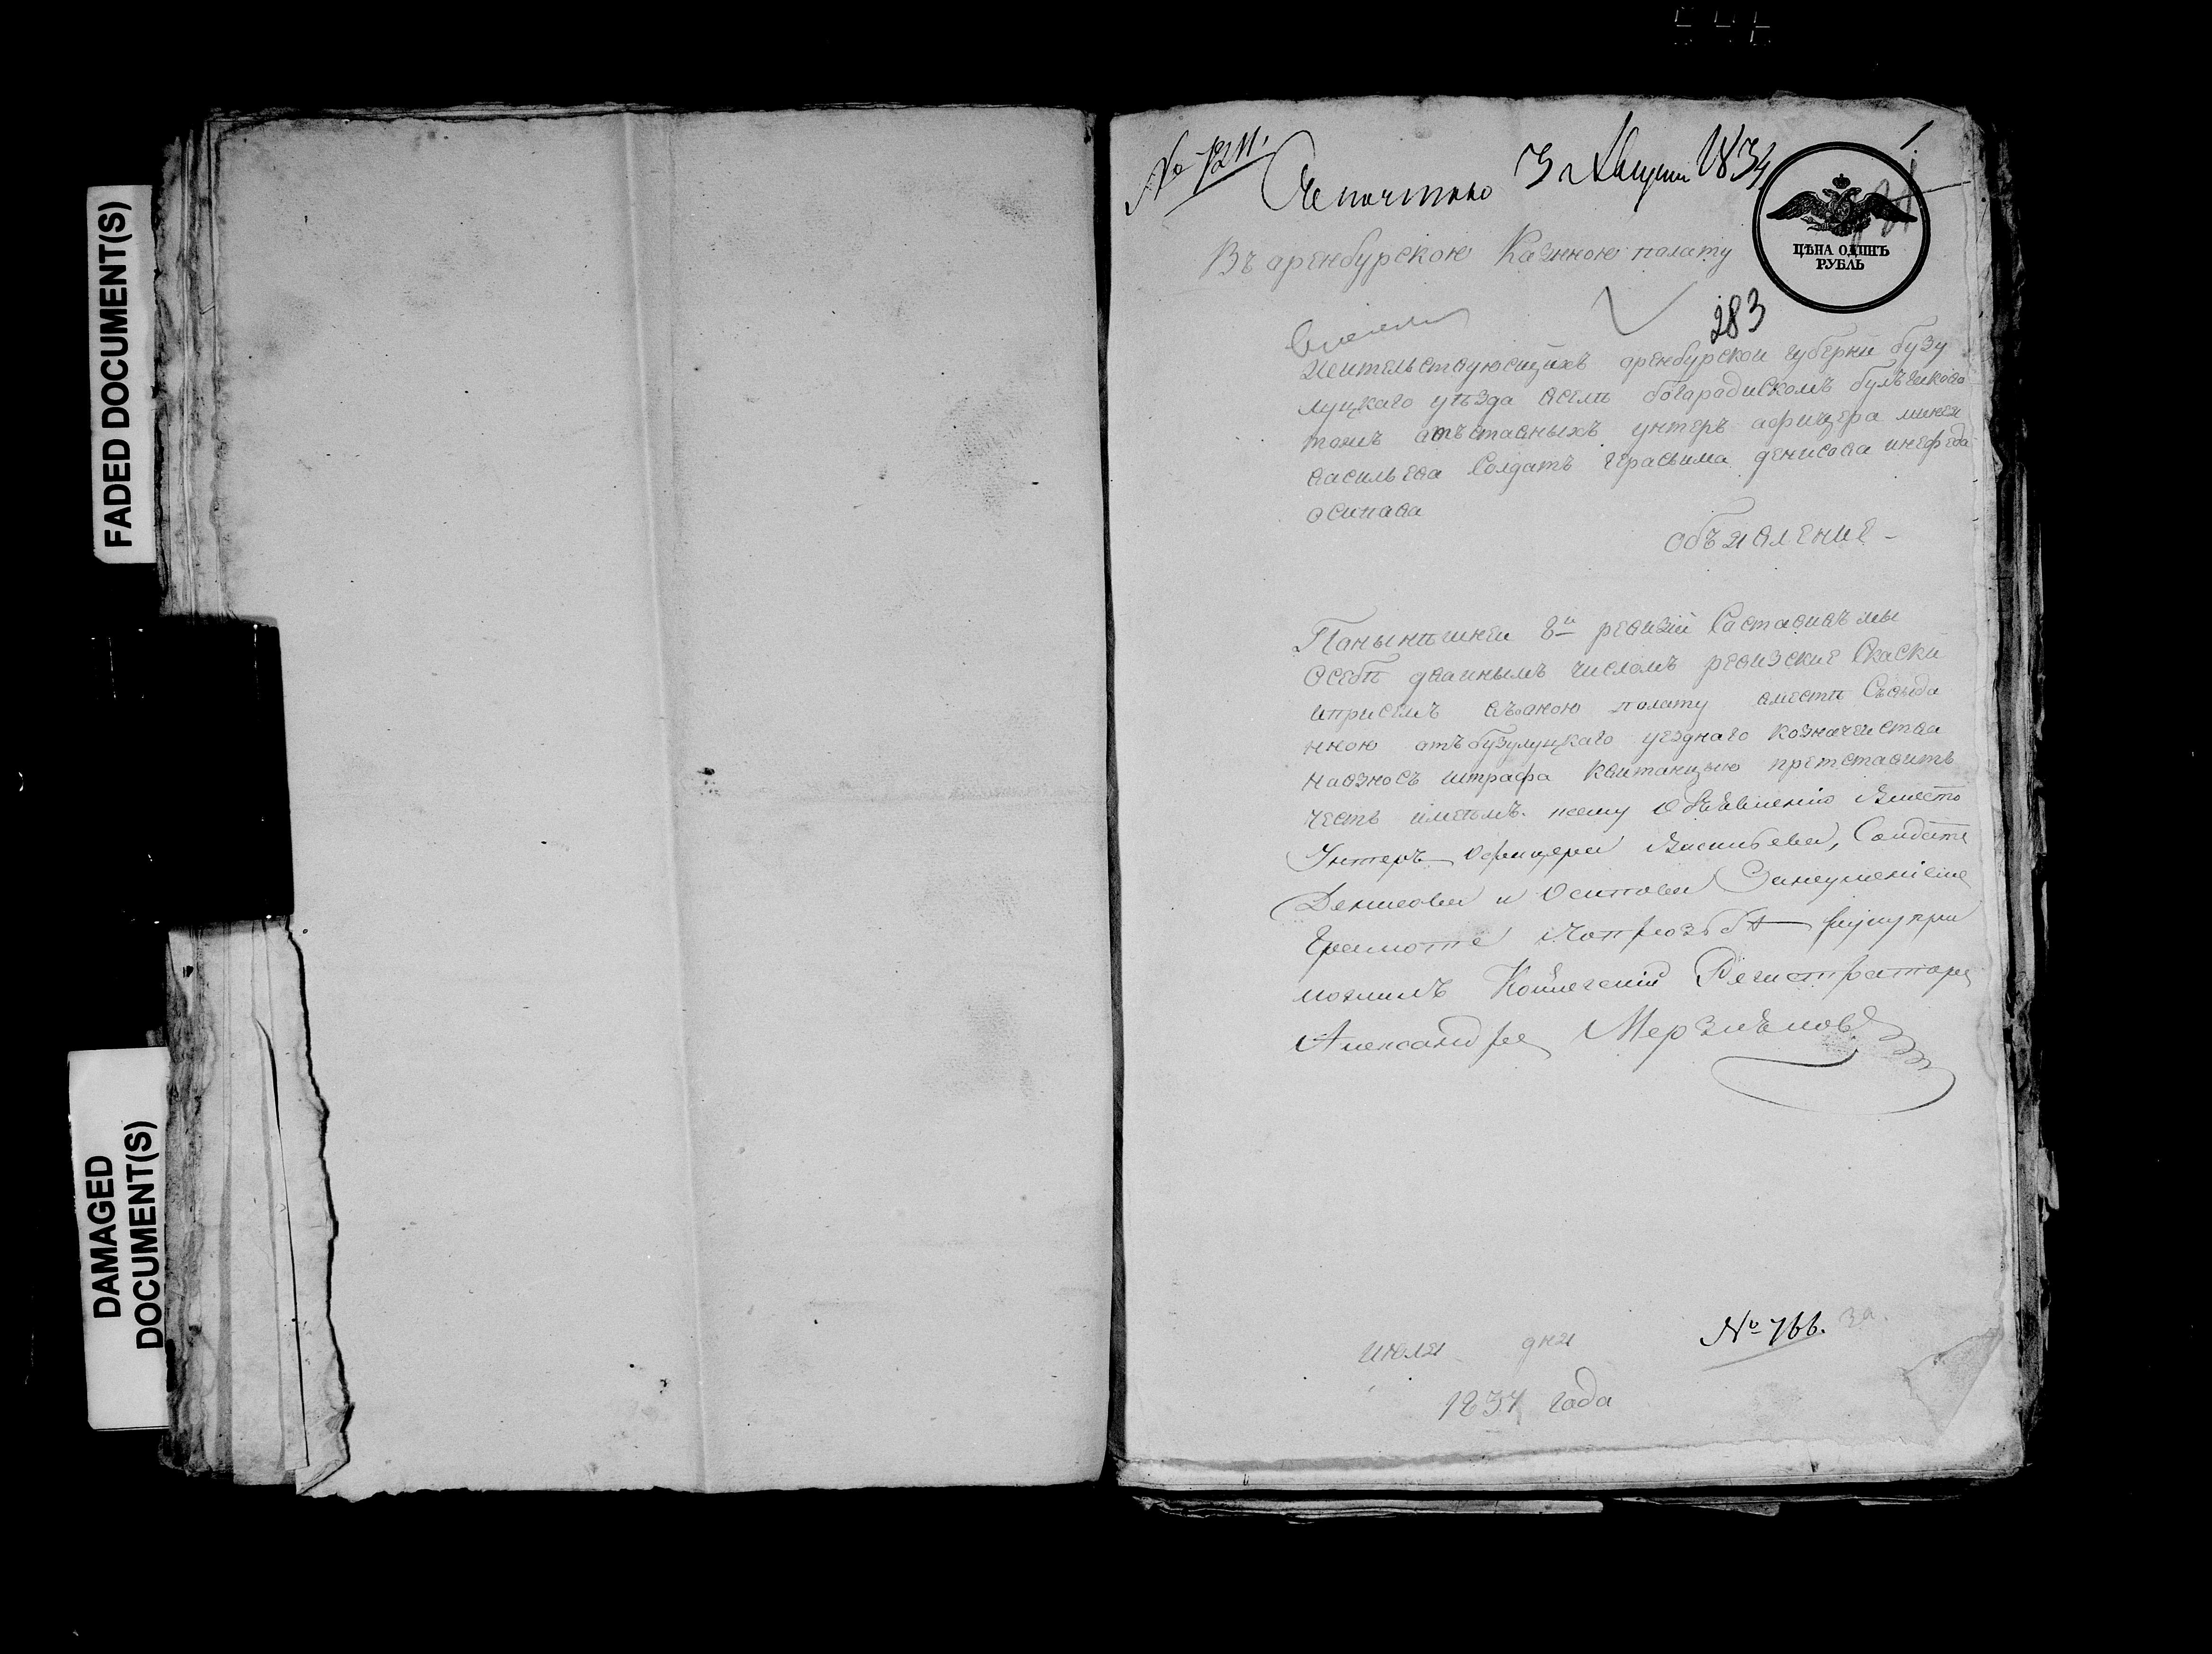 FADED DOCUMENT(S)
DAMAGED
DOCUMENT(S)
№ 1211.
Съ почтою 3 Августа 1834
ЦѢНА ОДИНЪ
РУБЛЬ
Въ аренбурскою Казенною палату
283
Жительствующихъ аренбурской губерни бузу
луцкаго уѣзда всѣлѣ богарадиском
томъ атъставныхъ унтеръ афицера
васильева Солдатъ герасима денисова инефеда
осипава
объявление
Панынѣшнеи 8й ревизии Саставивъ мы
Осебѣ двайнымъ числомъ ревизские Скаски
иприсемъ въоною полату вместѣ Съвыда
нною отъ бузулуцкаго уезднаго козначеиства
навзносъ штрафа квитанцыю претставить
честь имеемъ. ксему Объявлению вместо
Унтеръ Офицера Васильева, Солдатъ
Денисова и Осипова Занеумениеме
Грамоте попрозбѣ руку при
ложилъ Колежский Регистраторъ
Александръ Мерзляковъ
июля дня
1834 года
№ 766.